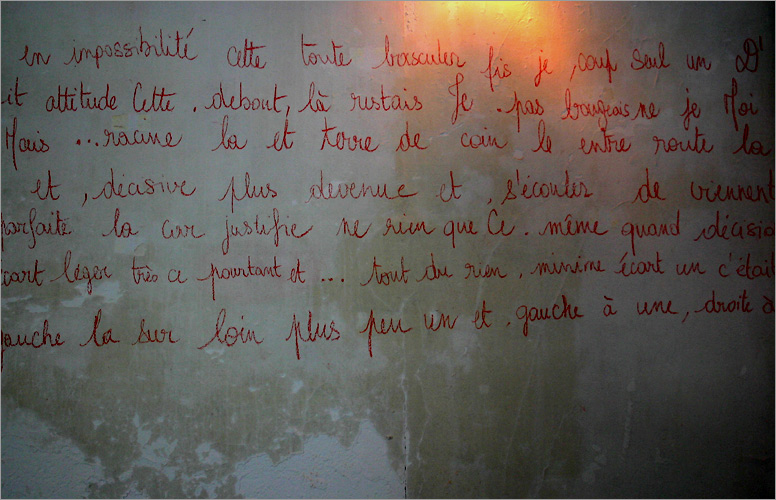 en impossibilité cette toute basculer fis je , coup seul un D'
it attitude Cette . debout, là restais Je . pas bougeais ne je Moi
Mais ... racine la et terre de coin le entre route la
et , décisive plus devenue et , s'écouler de viennent
parfaite la car justifie ne rien que Ce . même quand décisio
cart léger très ce pourtant et ... tout du rien , minime écart un c'était
gauche la sur loin plus peu un et . gauche à une , droite à